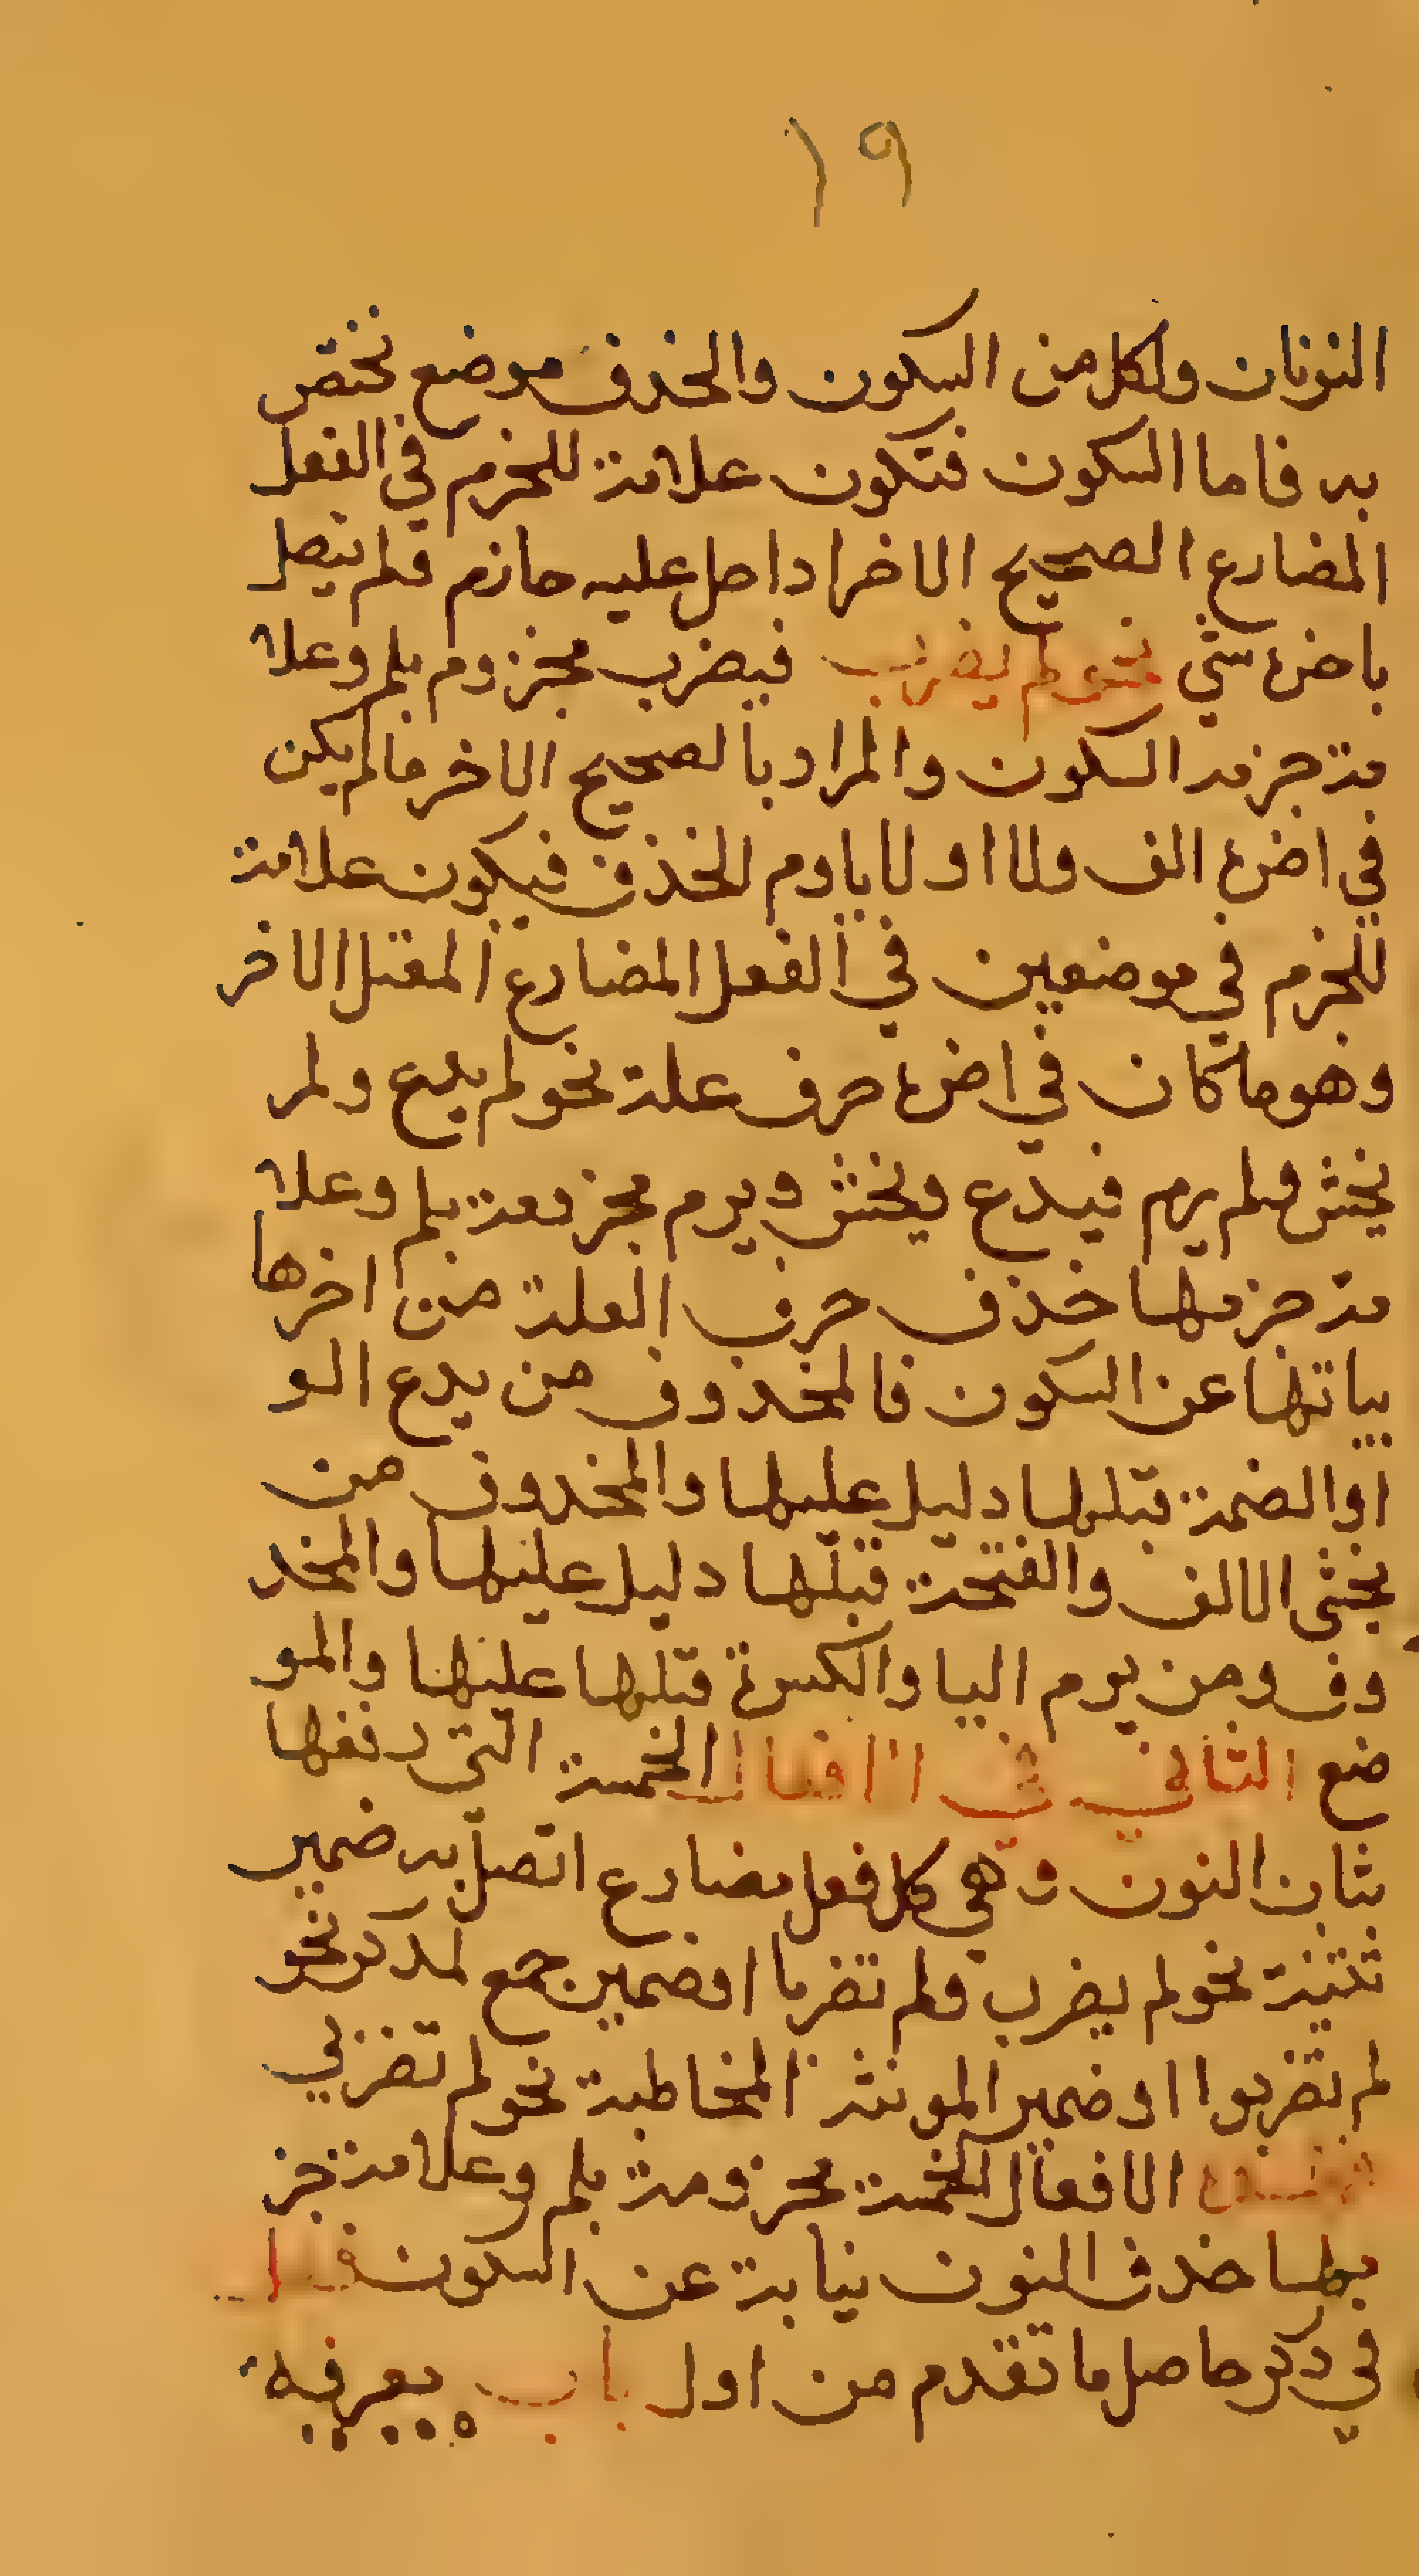 ١٩
النونان ولكل من السكون والخذف موضع نختص
به فاما السكون فتكون علامة للخزم في الفعل
المضارع الصحيح الاخر اداحل عليه حازم فلم يتصل
باخره شي نحو لم يضرب فيضرب مجزوم بلم وعلا
مة جزمه السكون والمراد بالصحيح الاخر ما لم يكن
في اخره الف ولا او لا يا وم الخذف فيكون علامة
للخزم في موضعين في الفعل المضارع المعتل الاخر
وهو ما كان في اخره حرف علة نحو لم يدع ولم
يخش ولم يرم فيدع ويخش ويرم مجزومة بلم وعلا
مة حزمها خذف حرف العلة من اخرها
بياتها عن السكون فالمخذوف من يدع الو
او الضمة قبلها دليل عليها والمخدوف من
يخشى الالف والفتحة قبلها دليل عليها والمخد
وف ومن يوم اليا والكسرة قبلها عليها والمو
ضع الثاني في الافعال الخمسة التي رفعها
بثبات النون وهي كل فعل مضارع اتصل به ضمير
تثنية نحو لم يضرب ولم تضربا اوضمير جمع لمدكر نحو
لم تضربوا او ضمير المونثة المخاطبة نحو لم تضربي
الافعال الخمسة مجزومة بلم وعلامة جز
مها خذف النون نيابة عن السكون
في ذكر حاصل ما تقدم من اول باب يعرفه